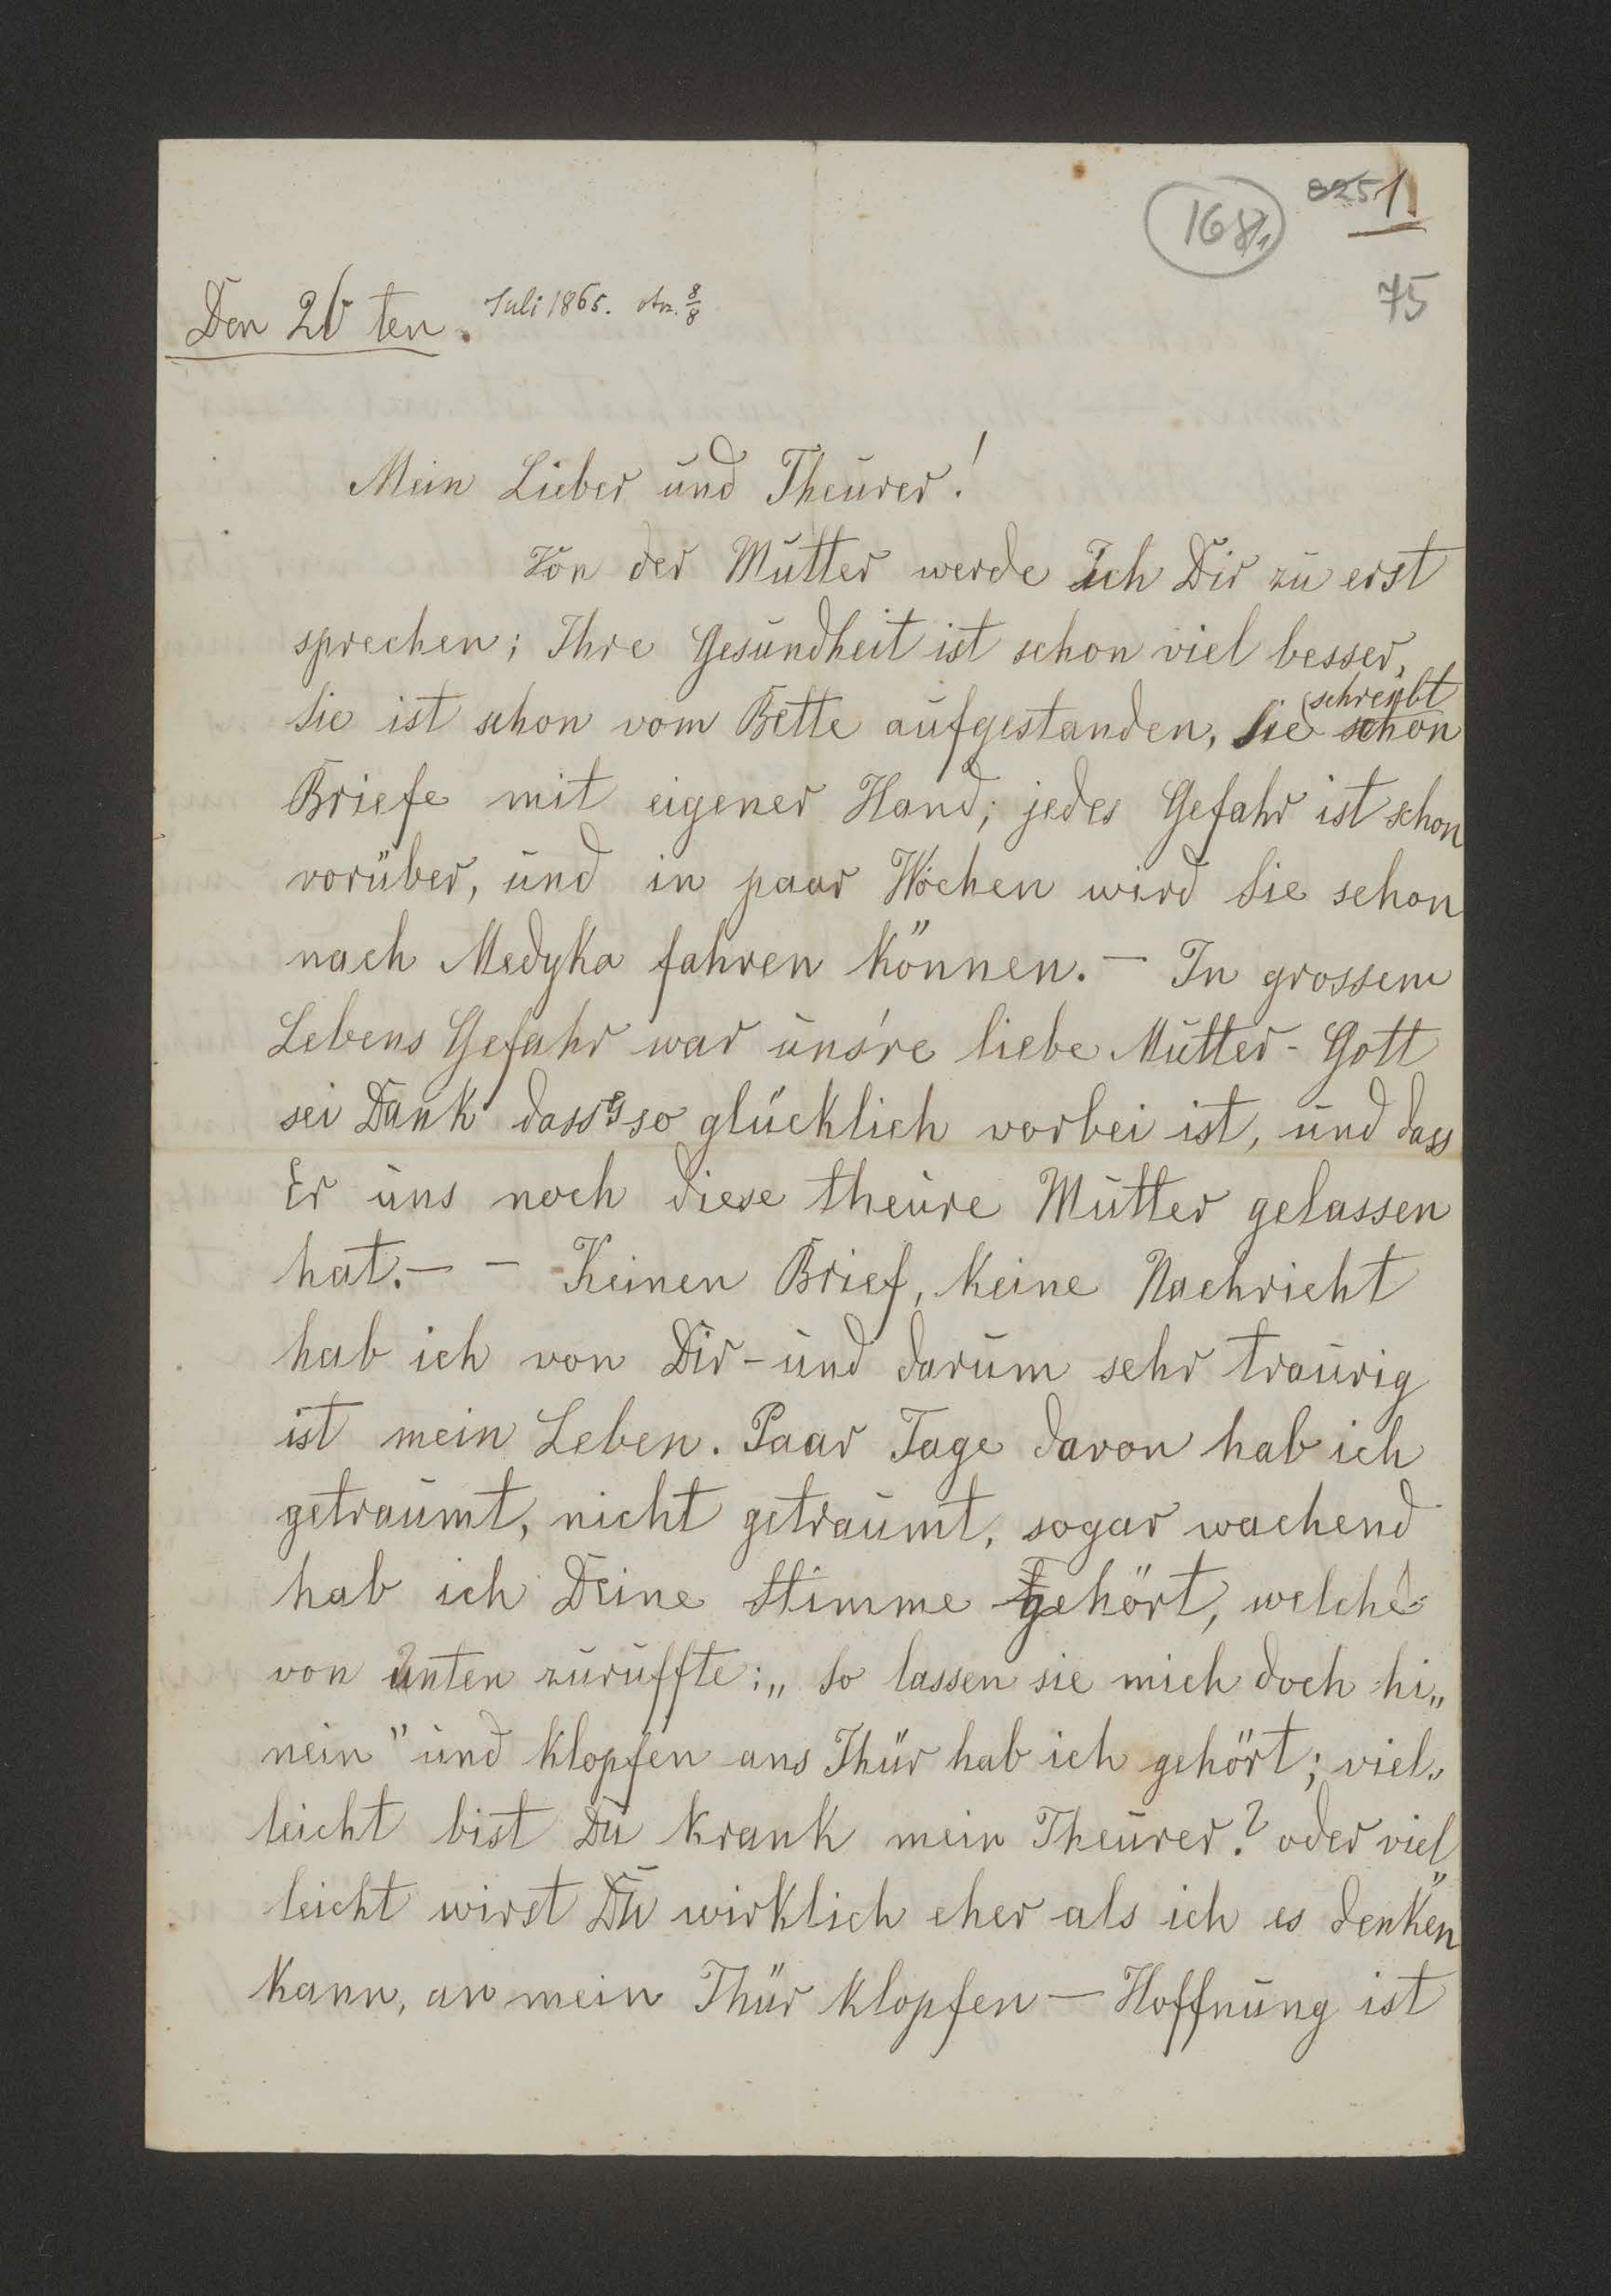 168/1
825 1
75
Den 26 ten. Juli 1865. otn. 8/8
Mein Lieber und Theurer!
Von der Mutter werde Ich Dir zu erst
sprechen; Ihre Gesundheit ist schon viel besser,
Sie ist schon vom Bette aufgestanden, Sie schreibt schon
Briefe mit eigener Hand; jedes Gefahr ist schon
vorüber, und in paar Wochen wird Sie schon
nach Medyka fahren können. — In grossem
Lebens Gefahr war uns're liebe Mutter - Gott
sei Dank dass es so glücklich vorbei ist, und dass
Er uns noch diese theure Mutter gelassen
hat. — — Keinen Brief, keine Nachricht
hab ich von Dir - und darum sehr traurig
ist mein Leben. Paar Tage davon hab ich
getraumt, nicht getraumt, sogar wachend
hab ich Deine Stimme gehört, welche
von unten zuruffte: „So lassen sie mich doch hi„
nein" und klopfen ans Thür hab ich gehört; viel„
leicht bist Du krank mein Theurer? oder viel„
leicht wirst Du wirklich eher als ich es denken
kann, an mein Thür klopfen — Hoffnung ist